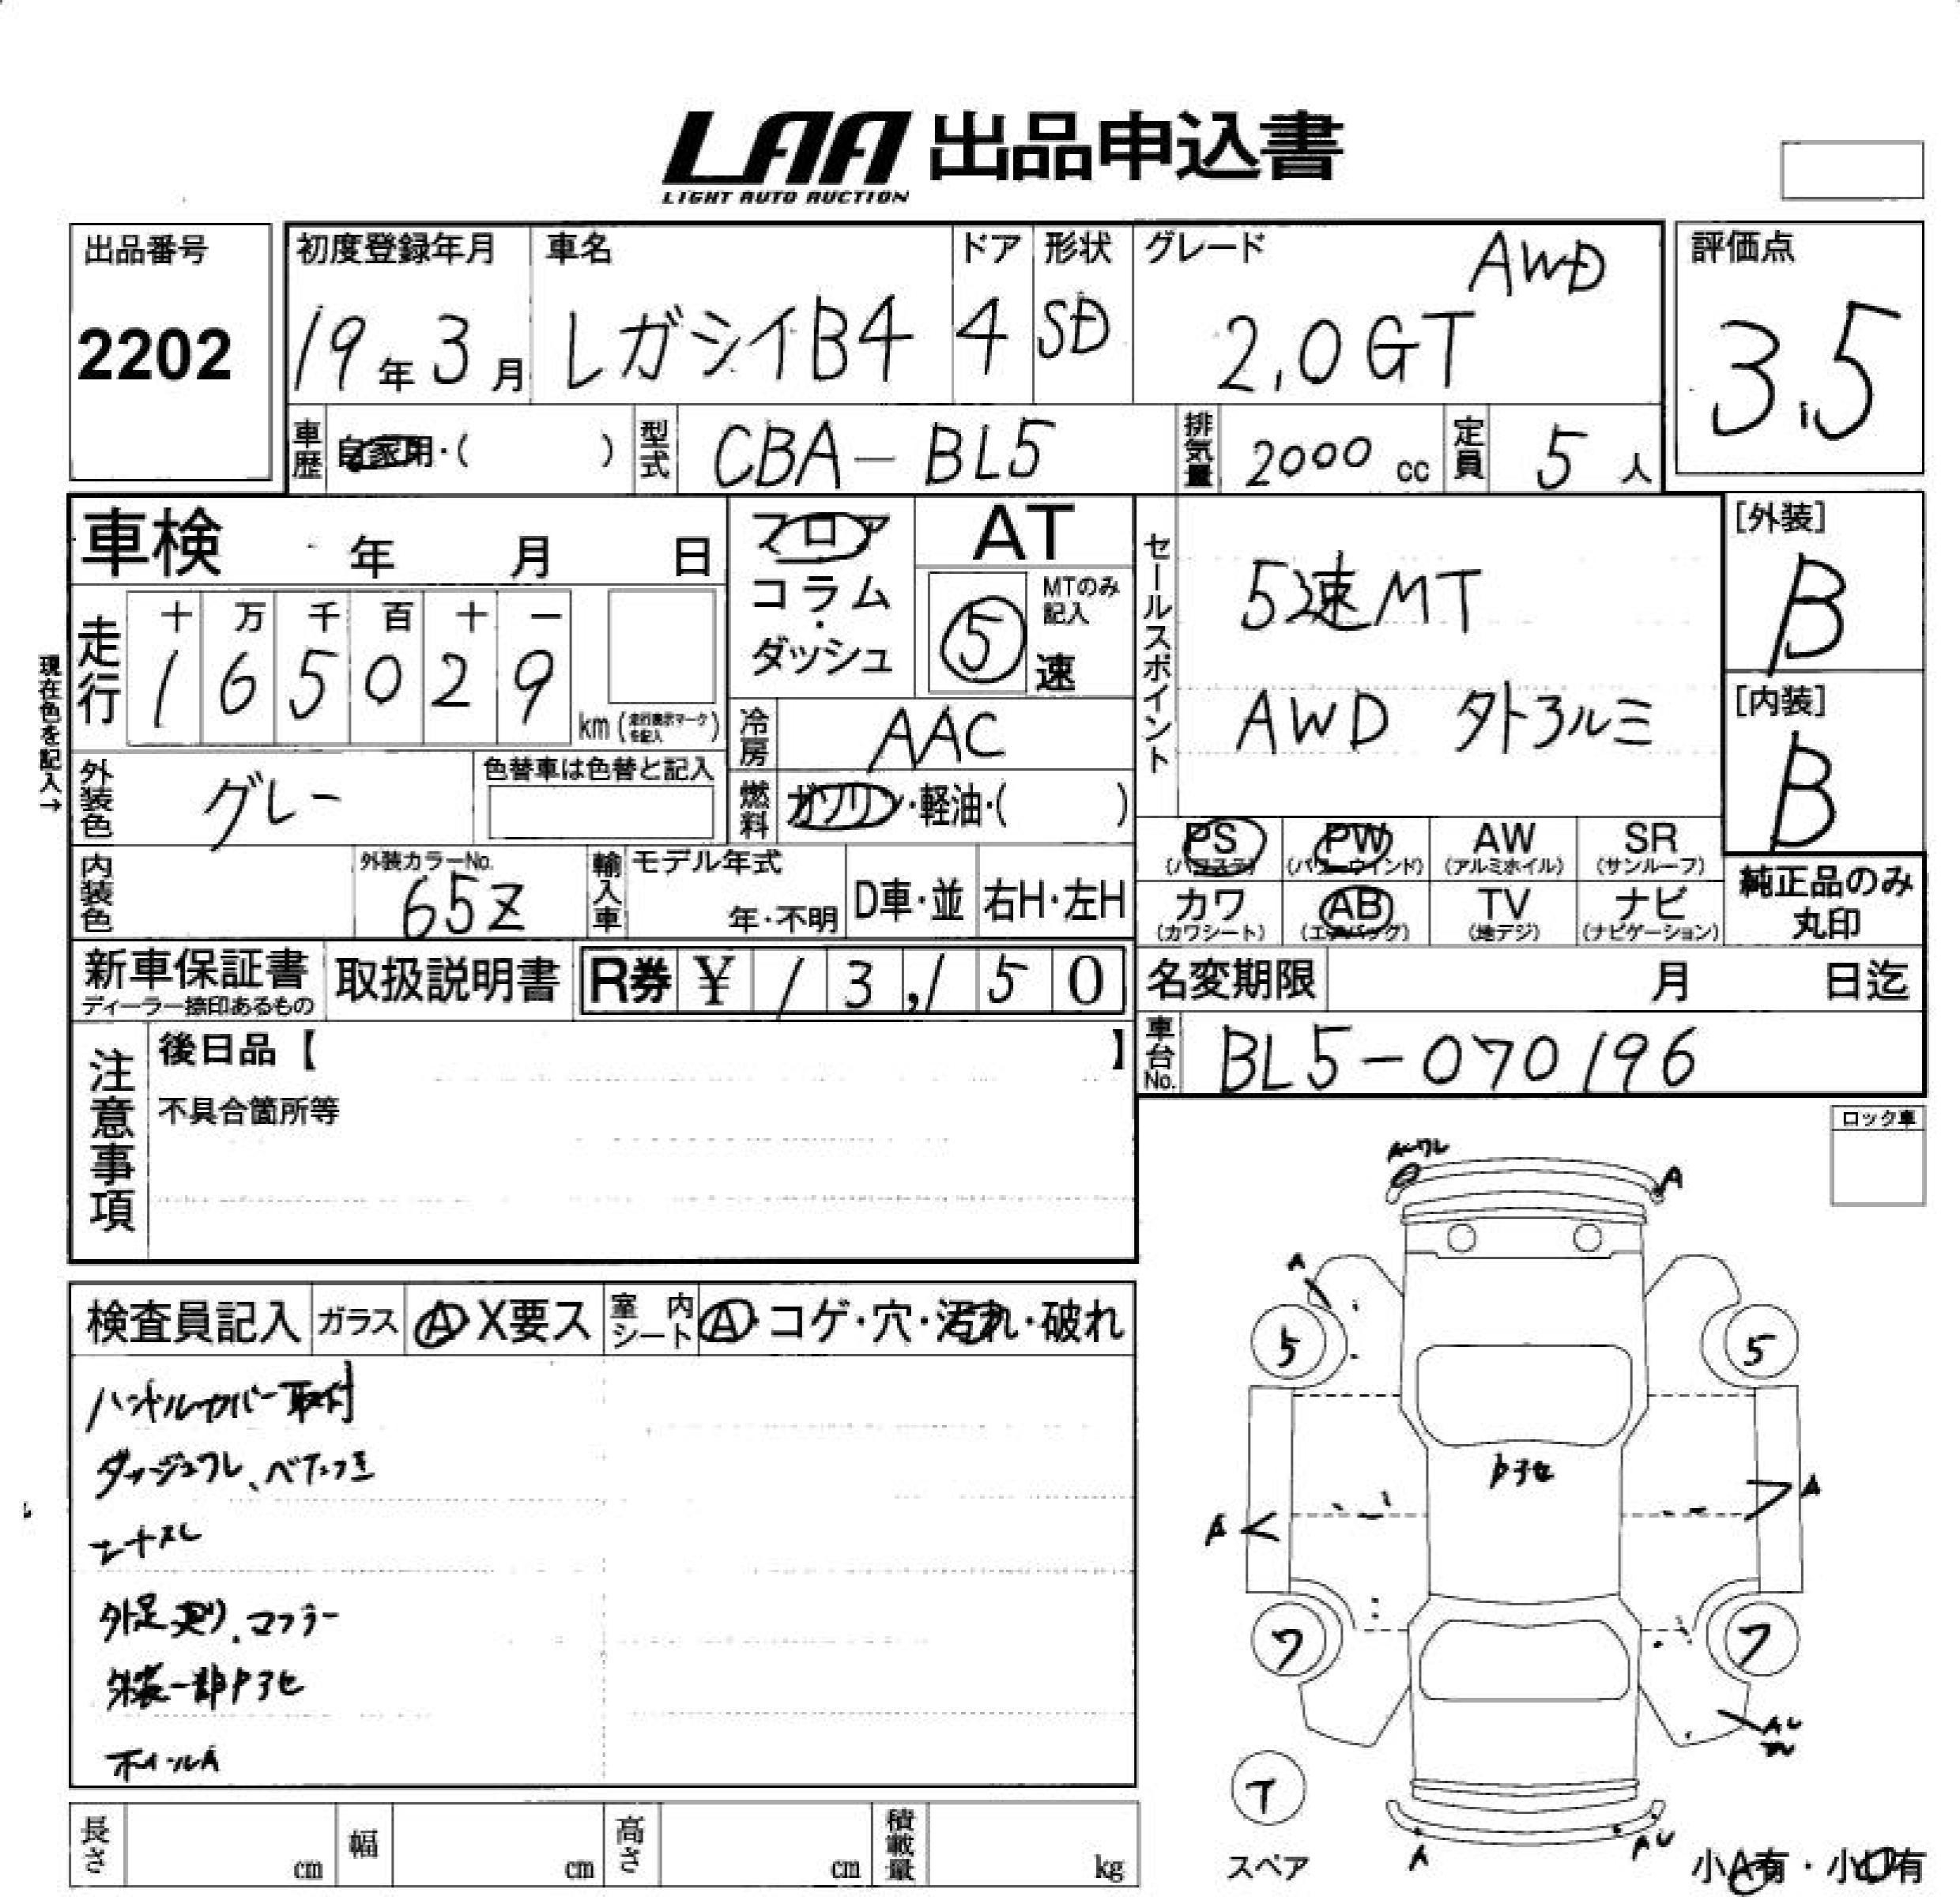 LAA 出品申込書
LIGHT AUTO AUCTION
出品番号
2202
初度登録年月
19年3月
車名
レガシィB4
ドア
4
形状
SD
グレード
AWD
2.0GT
評価点
3.5
車歴
自家用・( )
型式
CBA-BL5
排気量
2000 cc
定員
5 人
車検 年 月 日
フロア
コラム・
ダッシュ
AT
MTのみ記入
5 速
セールスポイント
5速MT
AWD 外アルミ
[外装]
B
[内装]
B
現在色を記入→
走行
十 万 千 百 十 一
1 6 5 0 2 9
km (走行表示マークを記入)
冷房
AAC
外装色
グレー
色替車は色替と記入
燃料
ガソリン・軽油・( )
PS (パワステ)
PW (パワーウインド)
AW (アルミホイル)
SR (サンルーフ)
カワ (カワシート)
AB (エアバック)
TV (地デジ)
ナビ (ナビゲーション)
純正品のみ
丸印
内装色
外装カラーNo.
65Z
輸入車
モデル年式
年・不明
D車・並
右H・左H
新車保証書
ディーラー捺印あるもの
取扱説明書
R券 ¥ 13,150
名変期限 月 日迄
車台No.
BL5-070196
注意事項
後日品【 】
不具合箇所等
ロック車
検査員記入
ガラス
A X要ス
室内シート
A・コゲ・穴・汚れ・破れ
ハンドルカバー取付
ダッシュワレ、ベタつき
外足廻り、マフラー
外装一部色アセ
ホイールA
A
A
5
5
色アセ
A
A
ワ
フ
A
AU
T
スペア
小A有・小U有
長さ cm
幅 cm
高さ cm
積載量 kg